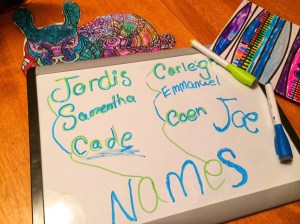 Jordis
Samantha
Cade
Carleigh
Emmanuel
Coen
Joe
Names